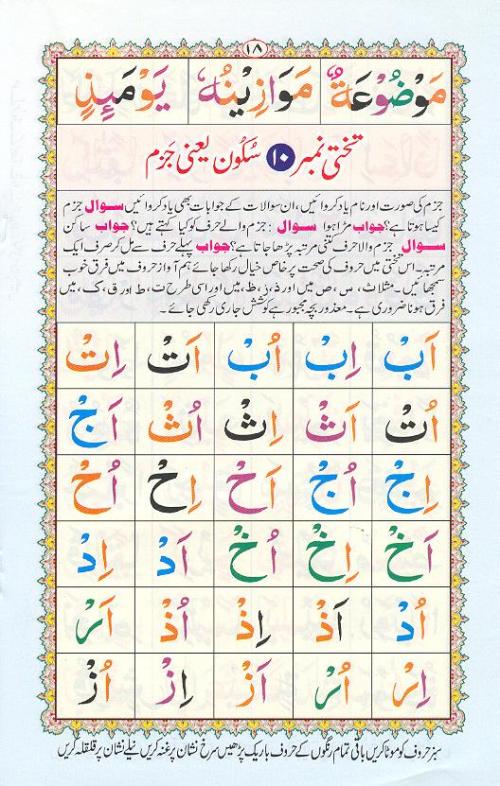 ۱۸
مَوْضُوْعَةٌ مَوَازِيْنُهٗ يَوْمَئِذٍ
تختی نمبر ۱۰ سکُون یعنی جَزم
جزم کی صورت اور نام یاد کروائیں، ان سوالات کے جوابات بھی یاد کروائیں سوال جزم
کیسا ہوتا ہے؟ جواب مڑا ہوا سوال : جزم والے حرف کو کیا کہتے ہیں؟ جواب ساکن
سوال جزم والا حرف کتنی مرتبہ پڑھا جاتا ہے؟ جواب پہلے حرف سے مل کر صرف ایک
مرتبہ۔ اس تختی میں حروف کی صحت پر خاص خیال رکھا جائے ہم آواز حروف میں فرق خوب
سمجھائیں۔ مثلا ث، س، ص میں اور ذ، ز، ظ، میں اور اسی طرح ت، ط اور ق، ک، میں
فرق ہونا ضروری ہے۔ معذور بچہ مجبور ہے کوشش جاری رکھی جائے۔
اَبْ اِبْ اُبْ اَتْ اِتْ
اُتْ اَثْ اِثْ اُثْ اَجْ
اِجْ اُجْ اَحْ اِحْ اُحْ
اَخْ اِخْ اُخْ اَدْ اِدْ
اُدْ اَذْ اِذْ اُذْ اَرْ
اِرْ اُرْ اَزْ اِزْ اُزْ
سبز حروف کو موٹا کریں باقی تمام رنگوں کے حروف باریک پڑھیں سرخ نشان پر غنہ کریں نیلے نشان پر قلقلہ کریں